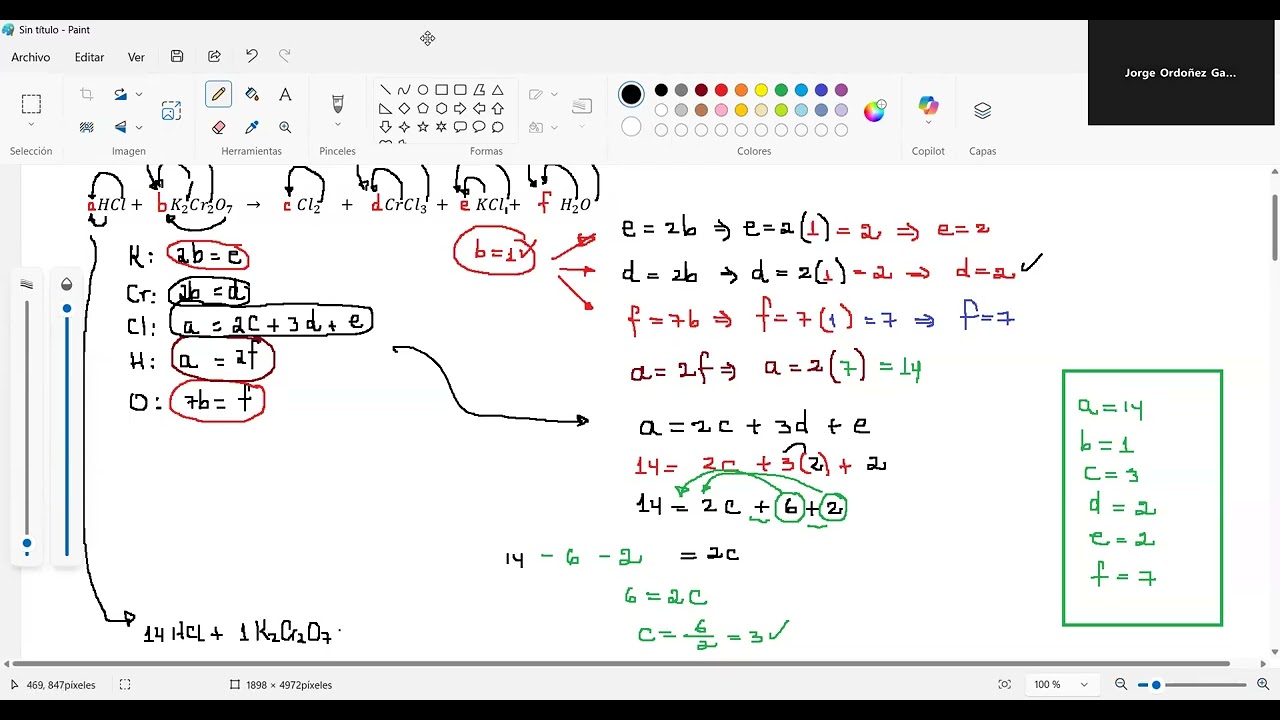 Sin título - Paint
Archivo Editar Ver
Jorge Ordoñez Ga...
Selección Imagen Herramientas Pinceles Formas Colores Copilot Capas
aHCl + bK₂Cr₂O₇ → cCl₂ + dCrCl₃ + eKCl + fH₂O
b=1✓
e = 2b ⇒ e=2(1)=2 ⇒ e=2
d = 2b ⇒ d=2(1)=2 ⇒ d=2✓
f = 7b ⇒ f=7(1)=7 ⇒ f=7
a=2f⇒ a=2(7)=14
K: 2b=e
Cr: 2b=d
Cl: a=2c+3d+e
H: a=2f
O: 7b=f
a=2c+3d+e
14= 2c+3(2)+2
14=2c+6+2
14 -6 -2 =2c
6=2c
c=6/2=3✓
a=14
b=1
c=3
d=2
e=2
f=7
14HCl+ 1K₂Cr₂O₇
469, 847píxeles 1898 × 4972píxeles 100 %